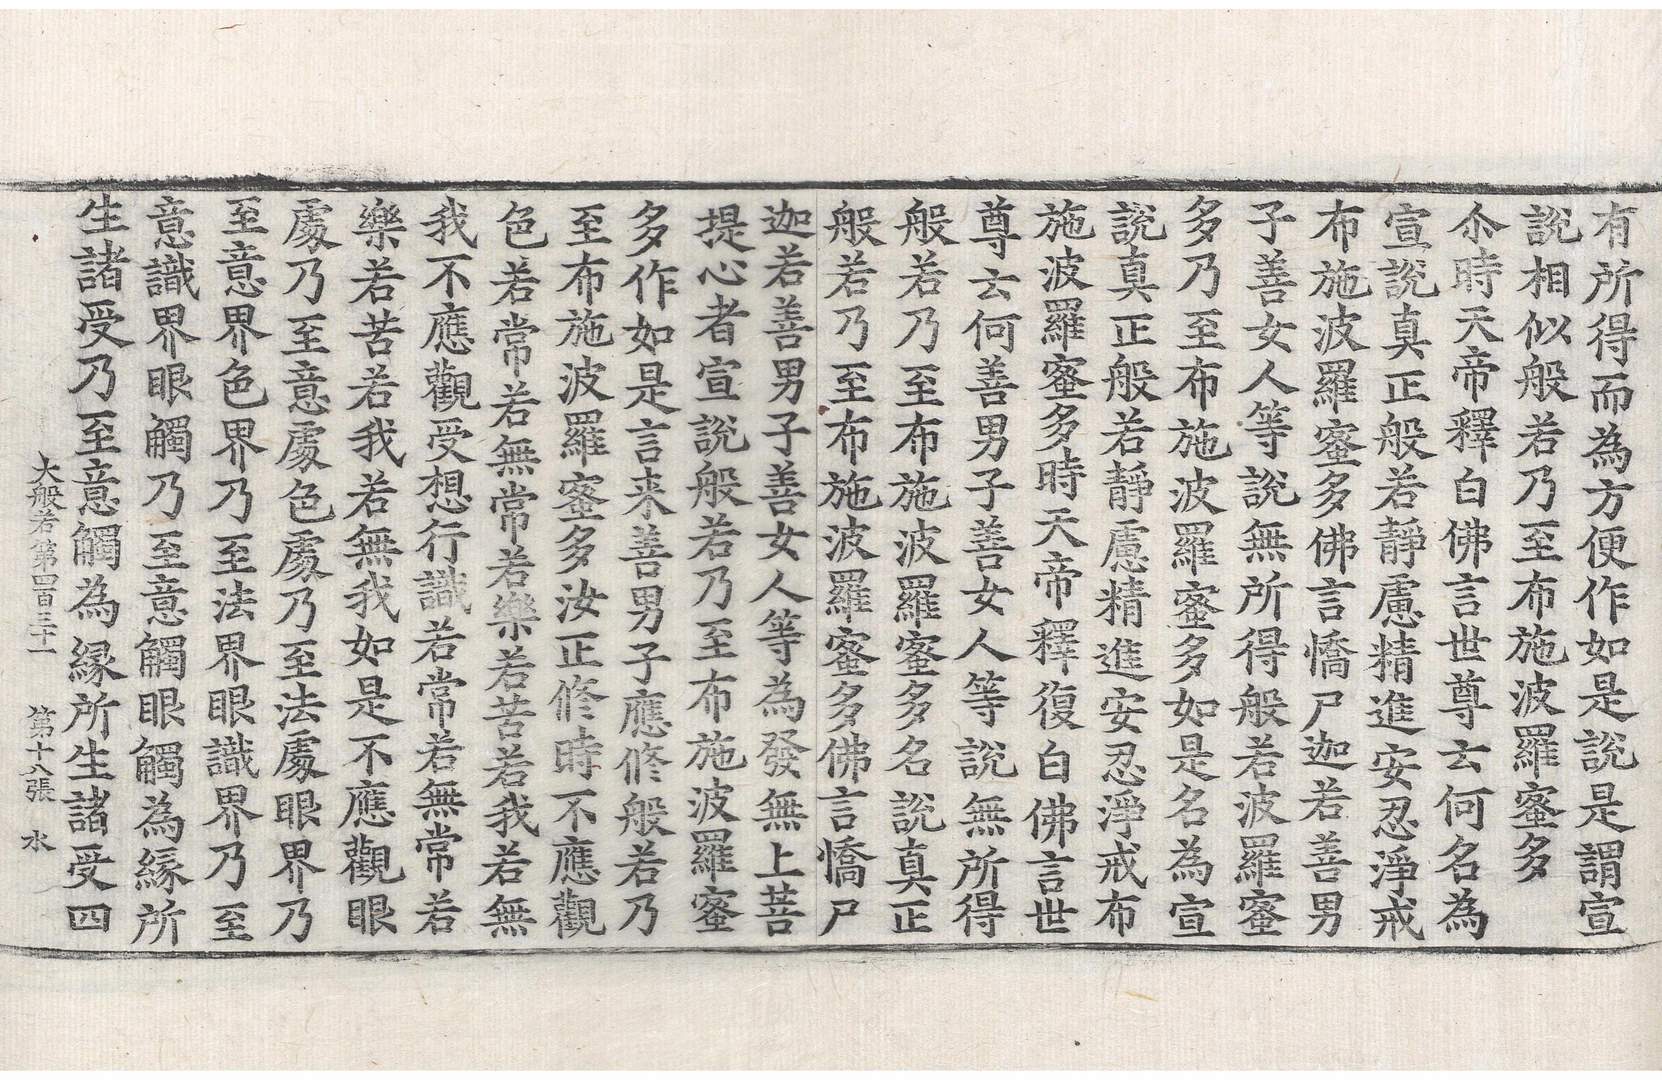 有所得而為方便作如是說是謂宣
說相似般若乃至布施波羅蜜多
尒時天帝釋白佛言世尊云何名為
宣說真正般若靜慮精進安忍淨戒
布施波羅蜜多佛言憍尸迦若善男
子善女人等說無所得般若波羅蜜
多乃至布施波羅蜜多如是名為宣
說真正般若靜慮精進安忍淨戒布
施波羅蜜多時天帝釋復白佛言世
尊云何善男子善女人等說無所得
般若乃至布施波羅蜜多名說真正
般若乃至布施波羅蜜多佛言憍尸
迦若善男子善女人等為發無上菩
提心者宣說般若乃至布施波羅蜜
多作如是言来善男子應修般若乃
至布施波羅蜜多汝正修時不應觀
色若常若無常若樂若苦若我若無
我不應觀受想行識若常若無常若
樂若苦若我若無我如是不應觀眼
處乃至意處色處乃至法處眼界乃
至意界色界乃至法界眼識界乃至
意識界眼觸乃至意觸眼觸為緣所
生諸受乃至意觸為緣所生諸受四
大般若第四百三十二 第十八張 水